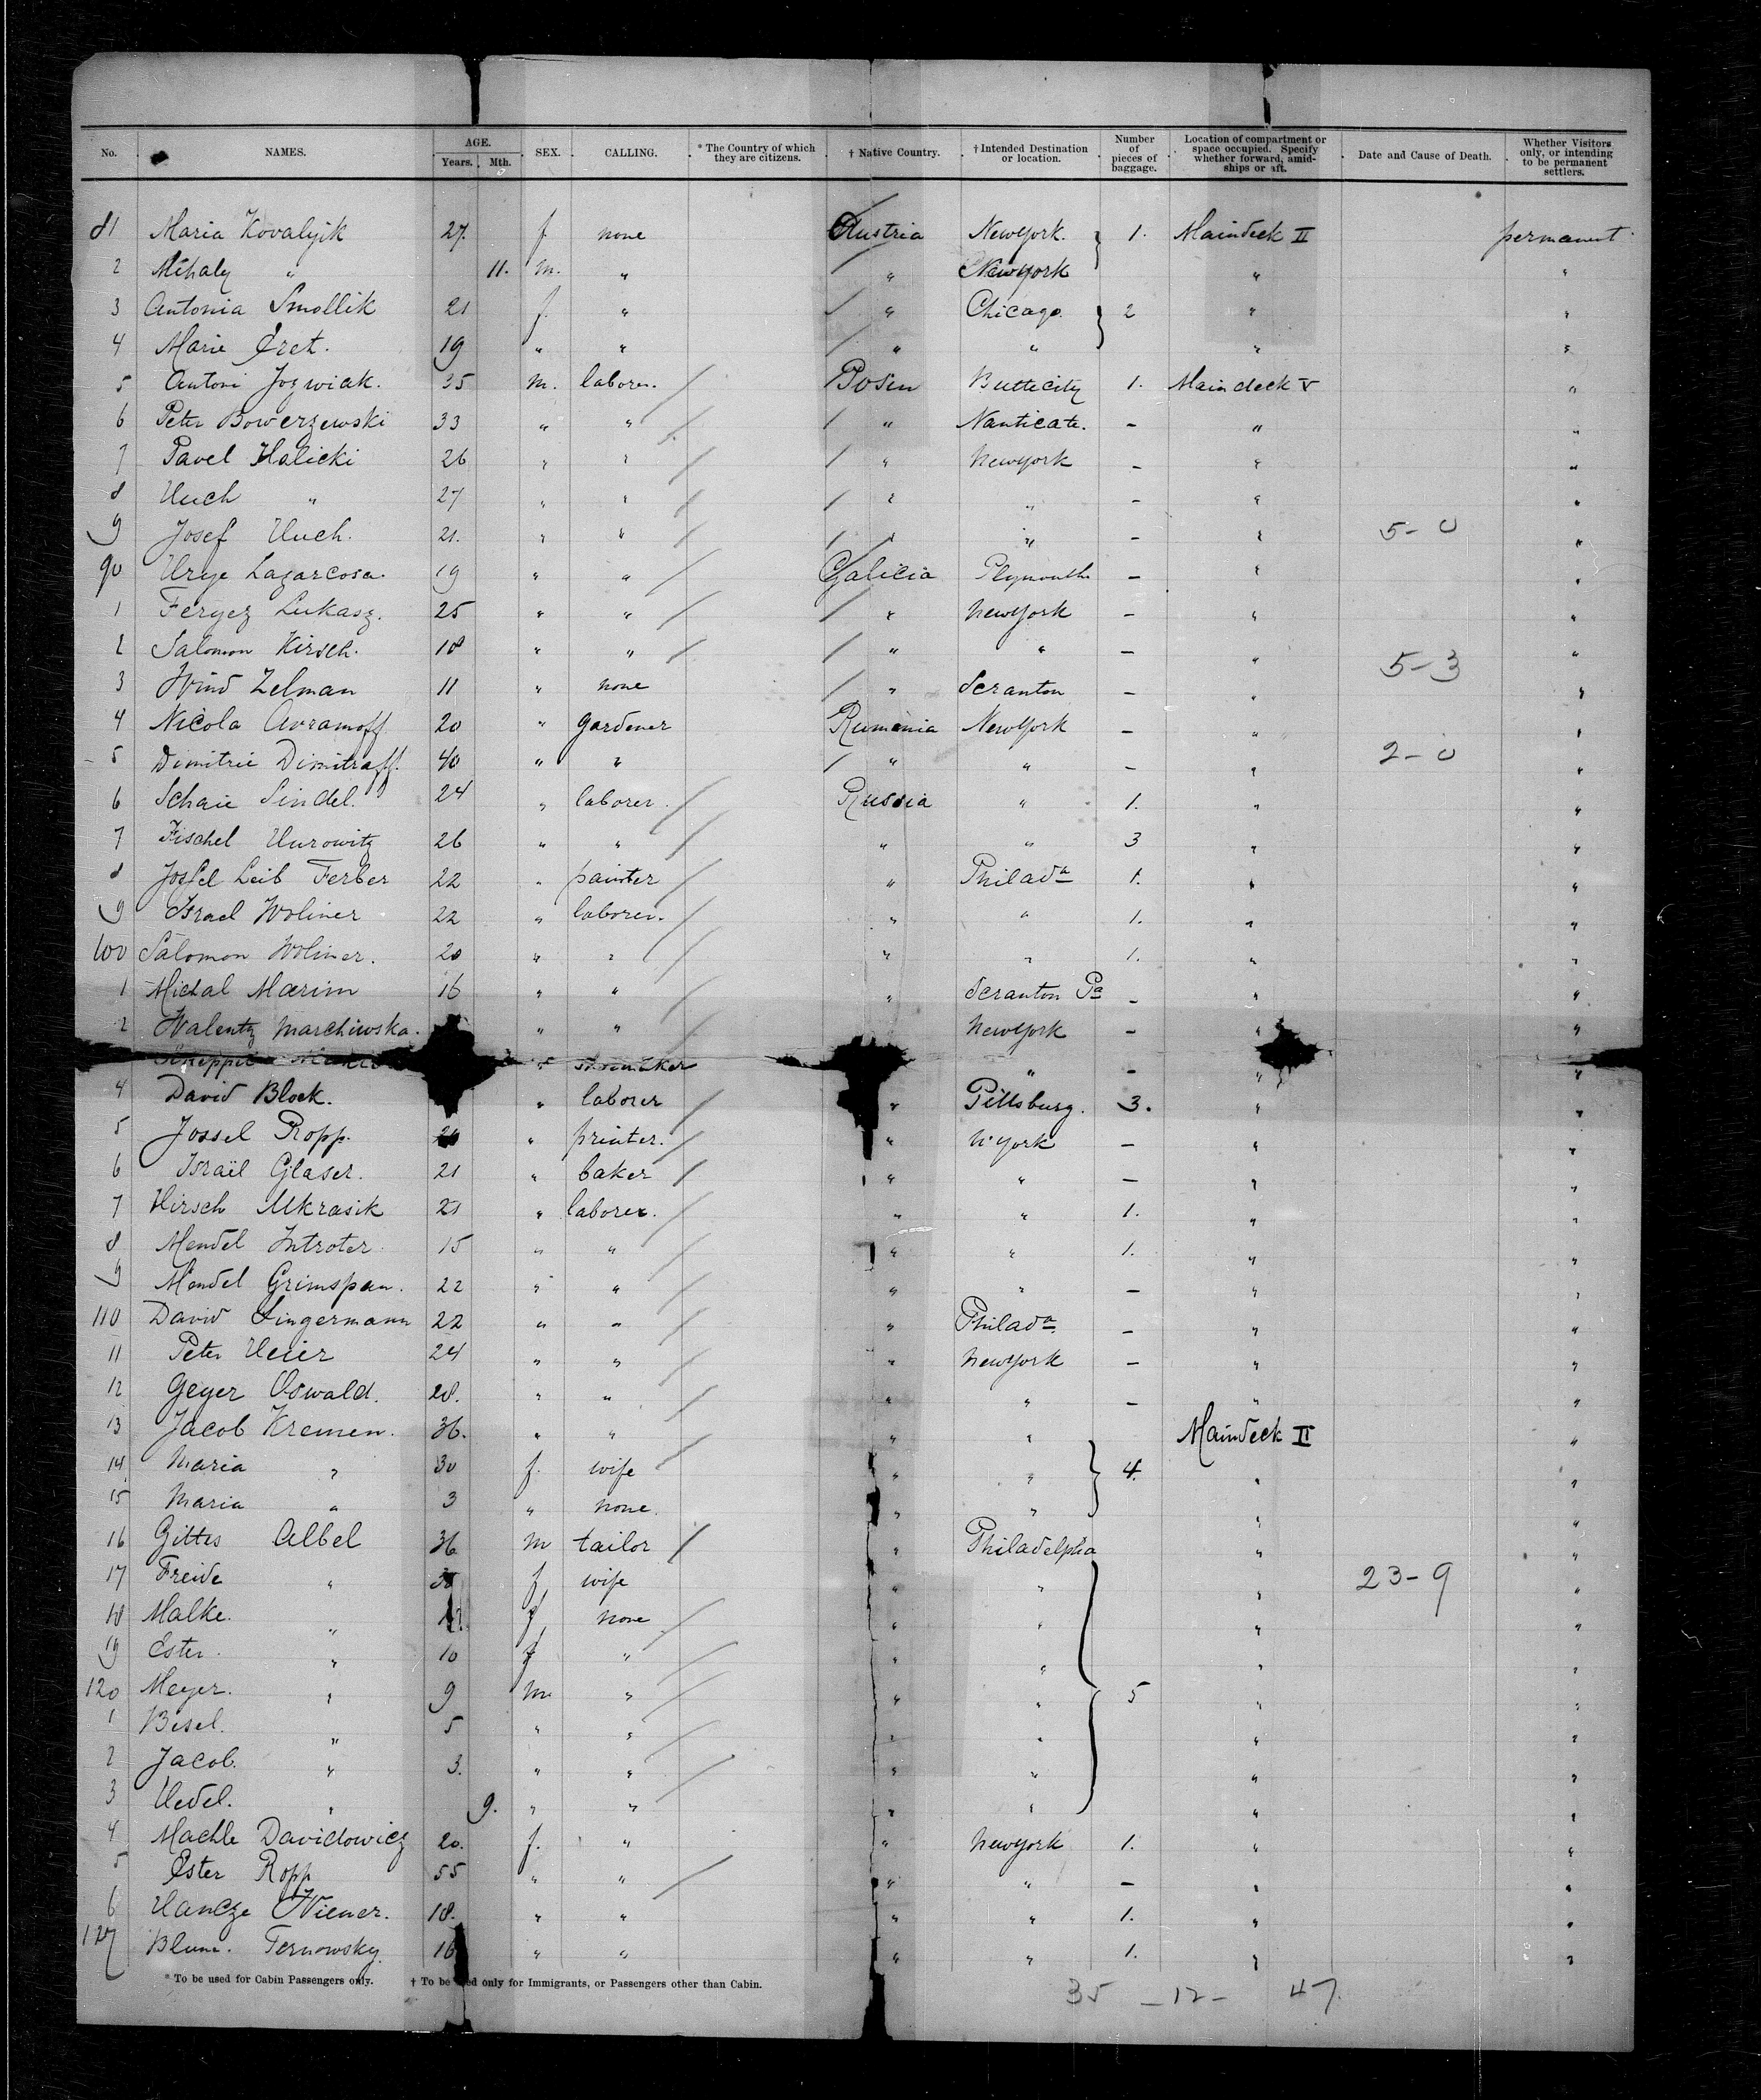 No. NAMES. AGE. Years. Mth. SEX. CALLING. * The Country of which they are citizens. † Native Country. † Intended Destination or location. Number of pieces of baggage. Location of compartment or space occupied. Specify whether forward, amidships or aft. Date and Cause of Death. Whether Visitors only, or intending to be permanent settlers.
81 Maria Kovalyik 27. f none Austria NewYork. 1. Maindeck II permanent
2 Mihaly " 11. m. " " NewYork " "
3 Antonia Smollik 21 f. " " Chicago. 2 " "
4 Marie Eret. 19 " " " " " "
5 Antoni Jozwiak. 35 m. laborer. Posen Buttecity 1. Maindeck V "
6 Peter Bowerzewski 33 " " " Nanticate. - " "
7 Pavel Halicki 26 " " " Newyork - " "
8 Huch " 27 " " " " - " "
9 Josef Huch. 21. " " " " - " 5-0 "
90 Urye Lazarcosa. 19 " " Galicia Plymouth - " "
1 Feryez Lukasz. 25 " " " Newyork - " "
2 Salomon Kirsch. 18 " " " " - " "
3 Wind Zelman 11 " none " Scranton - " 5-3 "
4 Nicola Avramoff 20 " gardener Rumania NewYork - " "
5 Dimitrie Dimitraff. 40 " " " " - " 2-0 "
6 Schaie Sindel. 24 " laborer. Russia " 1. " "
7 Fischel Hurowitz 26 " " " " 3 " "
8 Jossel Leib Ferber 22 " painter " Philada 1. " "
9 Israel Woliner 22 " laborer. " " 1. " "
100 Salomon Woliner. 20 " " " " 1. " "
1 Michal Marim 16 " " " Scranton Pa - " "
2 Walentz Marchiwska. " " Newyork - " "
" " - " "
4 David Block. " laborer " Pittsburg. 3. " "
5 Jossel Ropp. 20 " printer. " N'York - " "
6 Israël Glaser. 21 " baker " " - " "
7 Hirsch Ukrasik 21 " laborer. " " 1. " "
8 Mendel Introter. 15 " " " " 1. " "
9 Mendel Grimspan. 22 " " " " - " "
110 David Singermann 22 " " " Philada - " "
11 Peter Heier 24 " " " Newyork - " "
12 Geyer Oswald. 28. " " " " - " "
13 Jacob Kremen. 36. " " " " Maindeck II "
14 Maria " 30 f. wife " " 4. " "
15 Maria " 3 " none. " " " "
16 Gittes Albel 36 m tailor " Philadelpha " "
17 Freide " f wife " " " 23-9 "
18 Malke. " f none " " " "
19 Ester. " 10 f " " " " "
120 Meyer. " 9 m " " " 5 " "
1 Besel. " 5 " " " " " "
2 Jacob. " 3. " " " " " "
3 Hedel. " 9. " " " " " "
4 Machle Davidowicz 20. f. " " Newyork 1. " "
5 Ester Ropp 55 " " " " - " "
6 Hancze Wiener. 18. " " " " 1. " "
127 Blume. Ternowsky. 16 " " " " 1. " "
* To be used for Cabin Passengers only. † To be used only for Immigrants, or Passengers other than Cabin.
35 - 12 - 47.